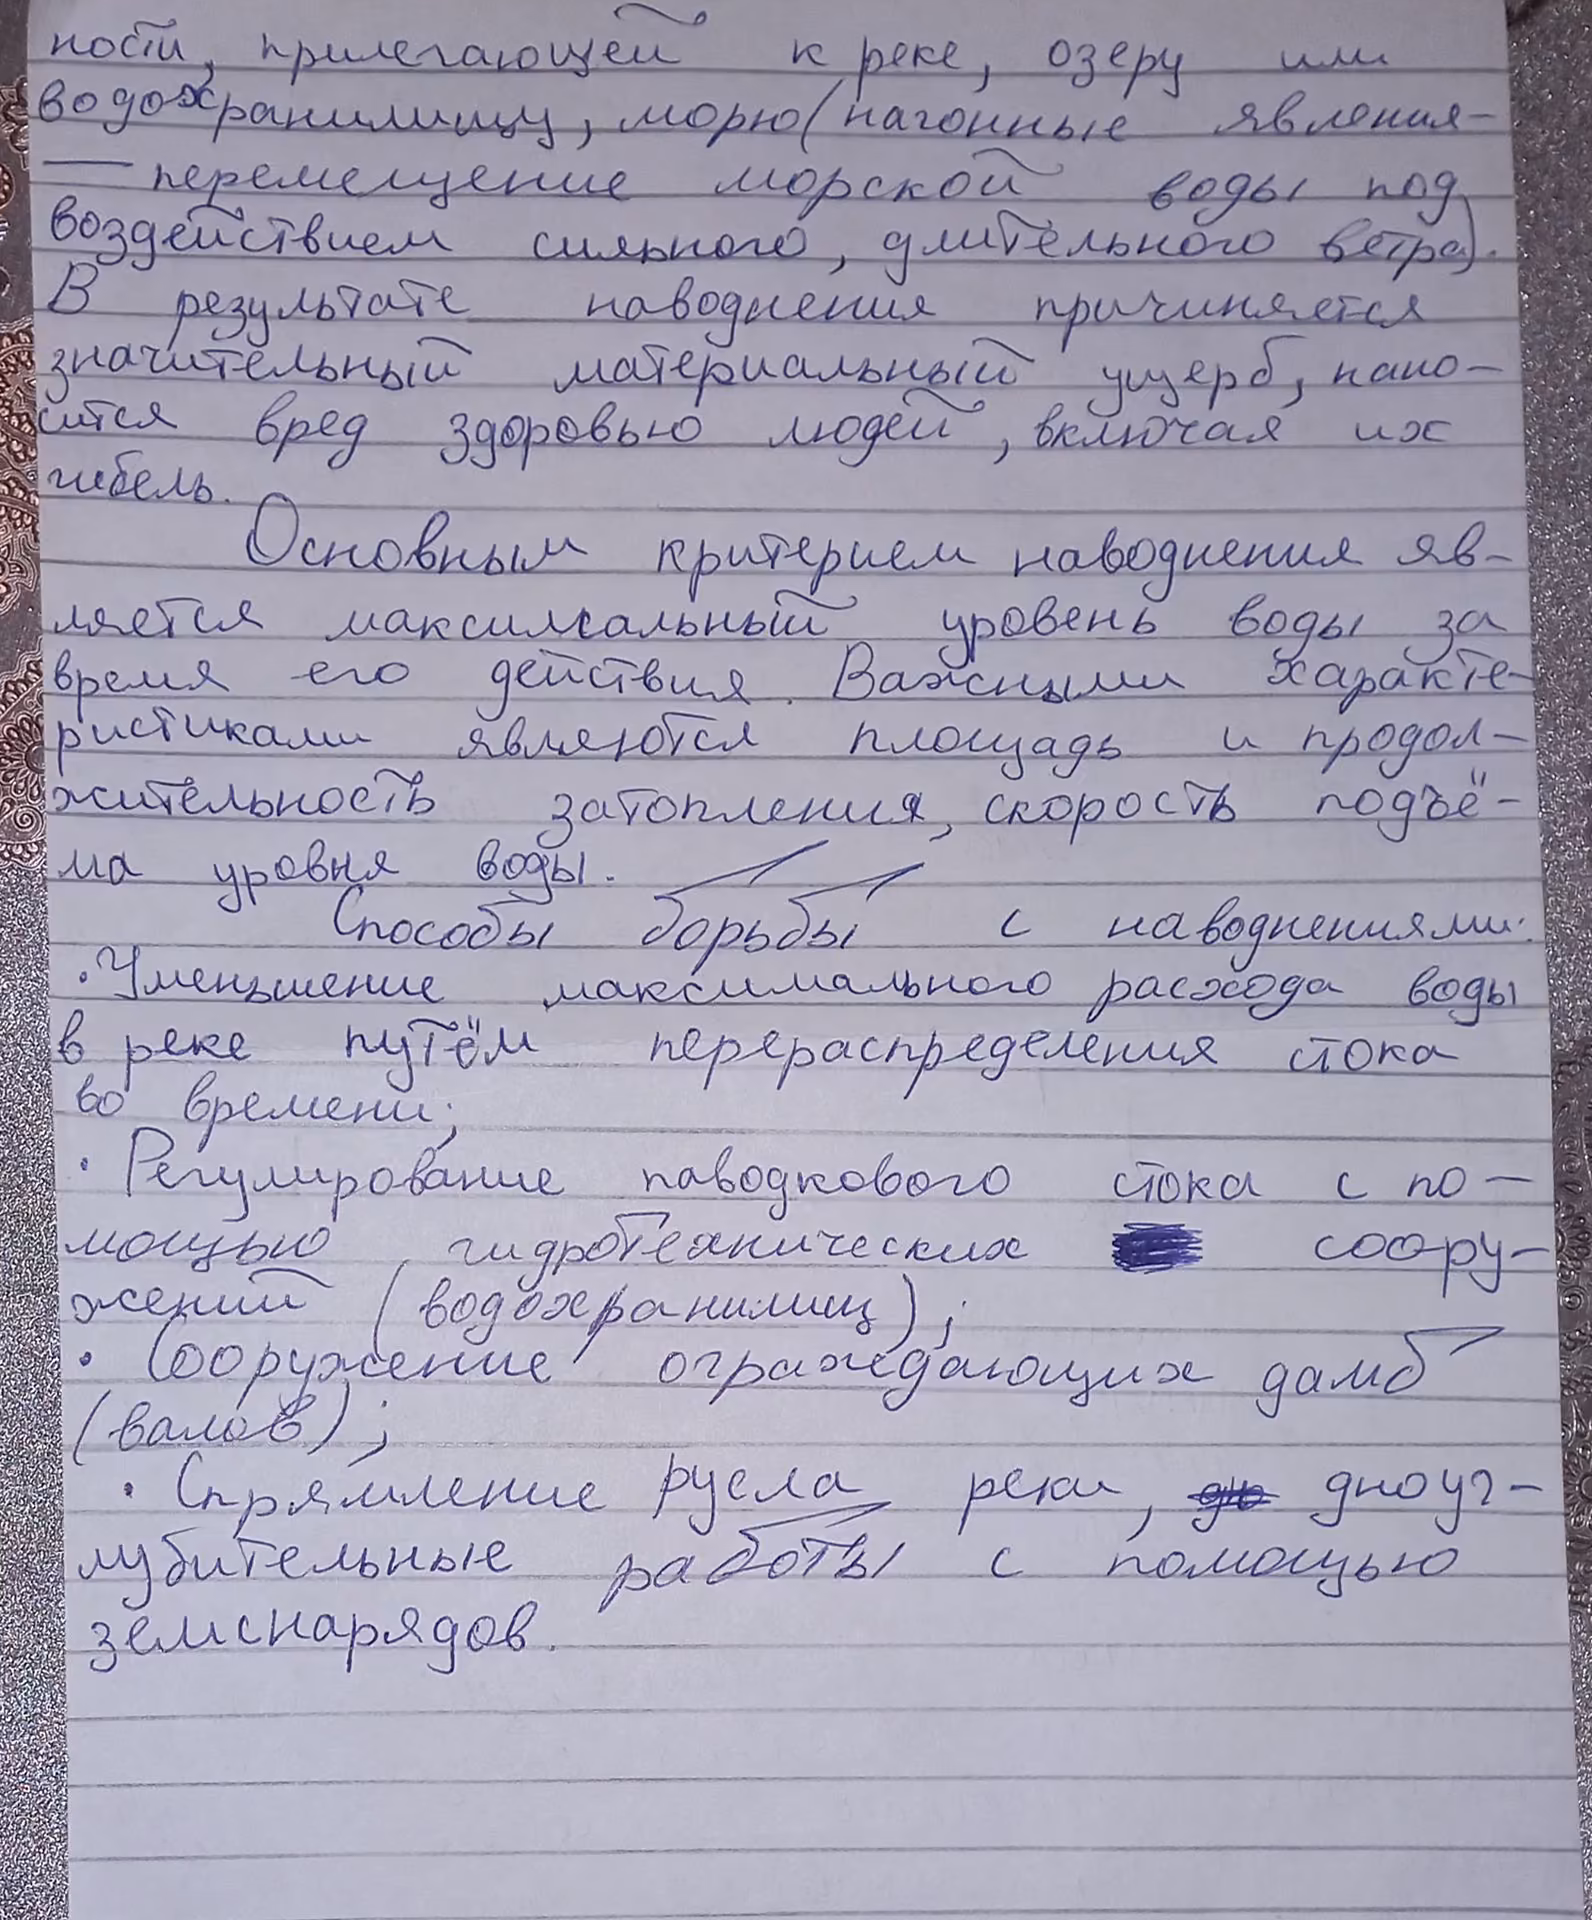 ности, прилегающей к реке, озеру или
водохранилищу, морю (нагонные явления-
— перемещение морской воды под
воздействием сильного, длительного ветра).
В результате наводнения причиняется
значительный материальный ущерб, нано-
сится вред здоровью людей, включая их
гибель.
Основным критерием наводнения яв-
ляется максимальный уровень воды за
время его действия. Важными характе-
ристиками являются площадь и продол-
жительность затопления, скорость подъё-
ма уровня воды.
Способы борьбы с наводнениями:
• Уменьшение максимального расхода воды
в реке путём перераспределения стока
во времени;
• Регулирование паводкового стока с по-
мощью гидротехнических соору-
жений (водохранилищ);
• Сооружение ограждающих дамб
(валов);
• Спрямление русла реки, дноуг-
лубительные работы с помощью
земснарядов.